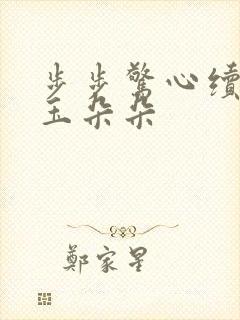 步步驚心續
玉朵朵
鄭家星